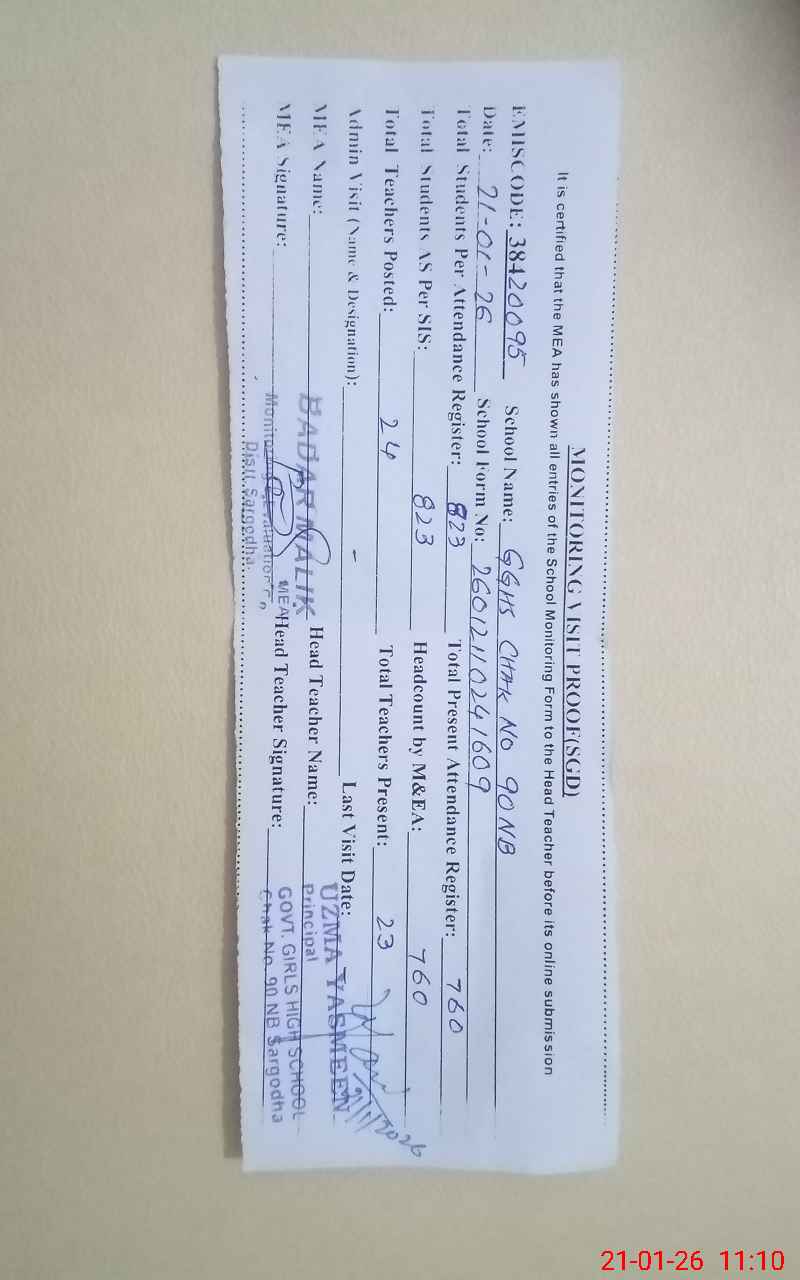 MONITORING VISIT PROOF(SGD)
It is certified that the MEA has shown all entries of the School Monitoring Form to the Head Teacher before its online submission
EMISCODE: 38420095 School Name: GGHS CHAK NO 90 NB
Date: 21-01-26 School Form No: 26012110241609
Total Students Per Attendance Register: 823 Total Present Attendance Register: 760
Total Students AS Per SIS: 823 Headcount by M&EA: 760
Total Teachers Posted: 24 Total Teachers Present: 23
Admin Visit (Name & Designation): - Last Visit Date:
MEA Name: BADAR MALIK Head Teacher Name: UZMA YASMEEN
Principal
MEA Signature: MEA Head Teacher Signature: GOVT. GIRLS HIGH SCHOOL
Chak No. 90 NB Sargodha
Distt. Sargodha.
21/1/2026
21-01-26 11:10